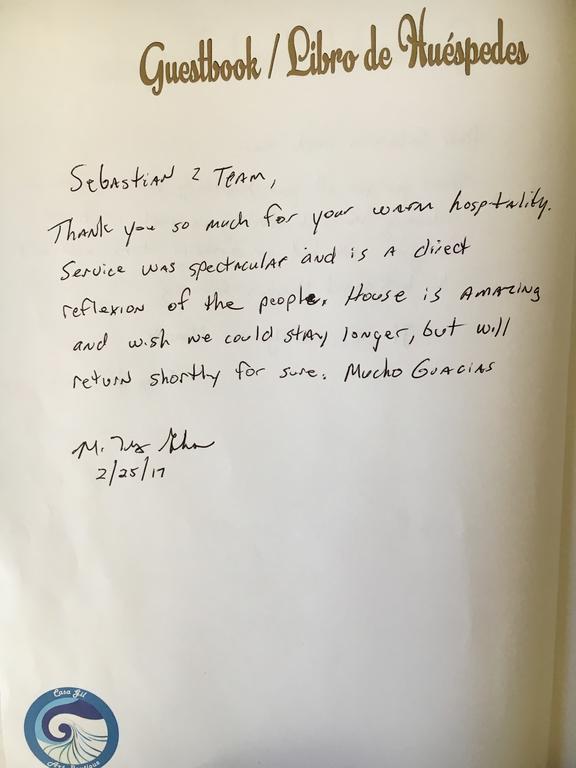 Guestbook / Libro de Huéspedes
Sebastian & Team,
Thank you so much for your warm hospitality.
Service was spectacular and is a direct
reflexion of the people. House is amazing
and wish we could stay longer, but will
return shortly for sure. Mucho Guacias
M.
2/25/17
Casa Gil
Art Boutique